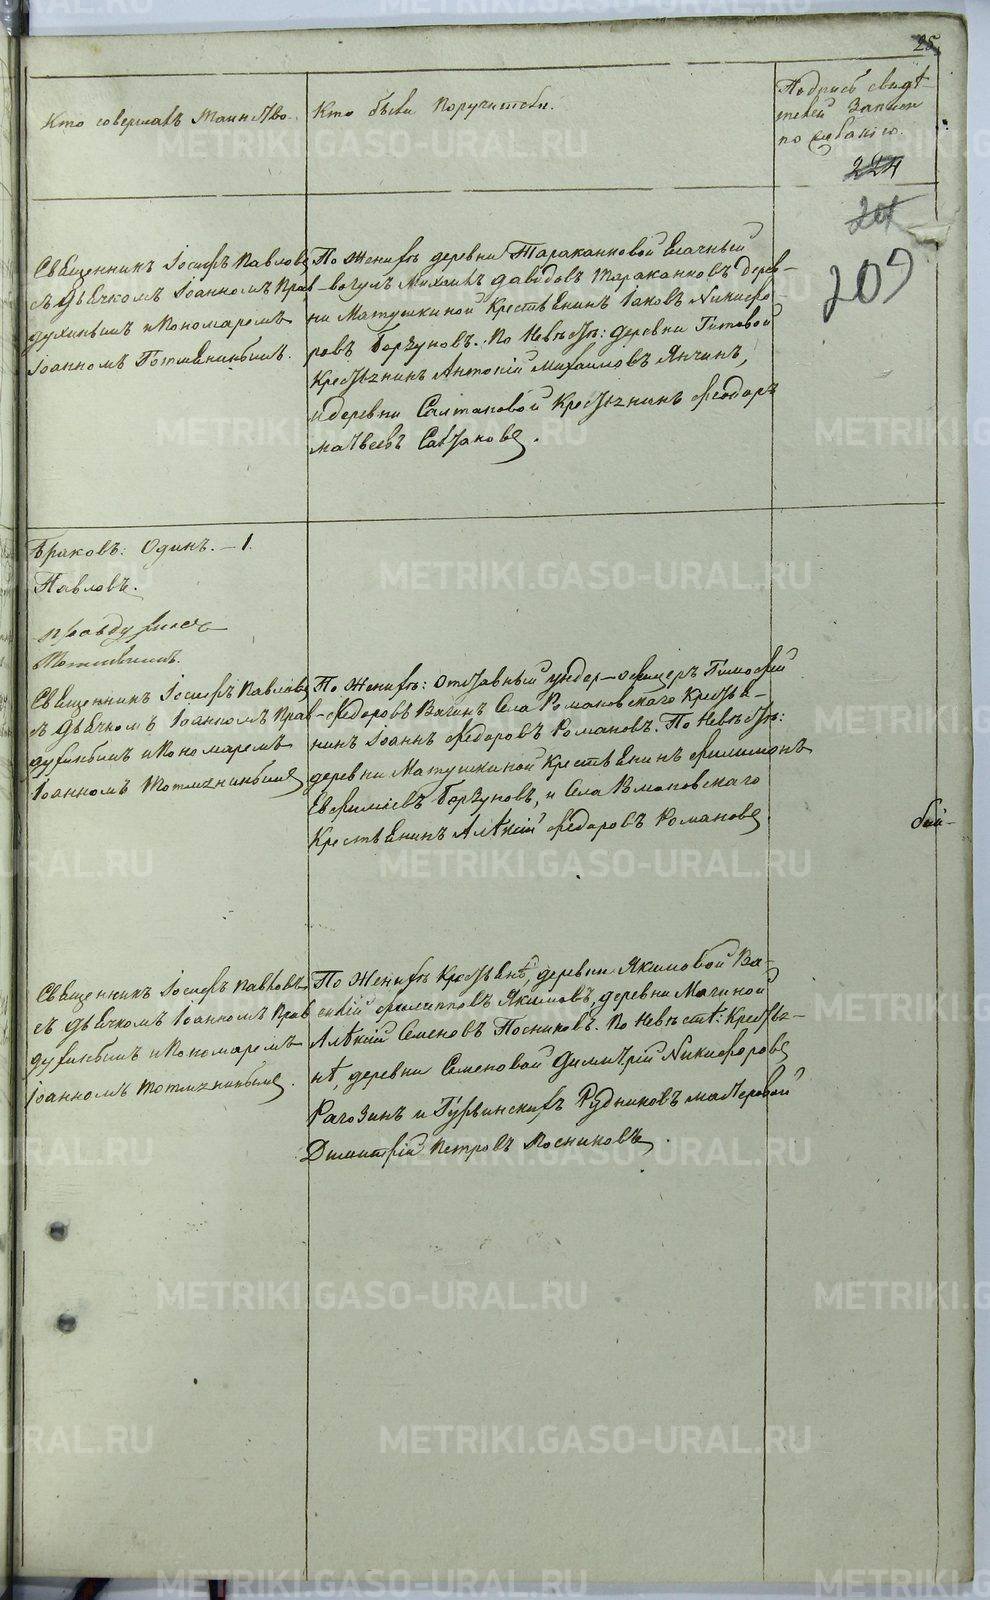 25.
Кто совершалъ таинство.
Кто были поручители.
Подпись свидѣ-
телей записи
по желанію.
224
201
209
Священникъ Іосифъ Павловъ
съ дьячкомъ Іоанномъ Прав
духинымъ и пономаремъ
Іоанномъ Тотмянинымъ.
По женихѣ деревни Таракановой ясачный
вогулъ Михаилъ Давидовъ Таракановъ дерев-
ни Матушкиной крестьянинъ Іаковъ Никифо-
ровъ Борзуновъ. По невѣстѣ: деревни Титовой
крестьянинъ Антоній Михайловъ Янчинъ,
и деревни Салтановой крестьянинъ Феодоръ
Матвеевъ
Браковъ: Одинъ. – 1.
Павловъ.
Правдухинъ
Тотмянинъ.
Священникъ Іосифъ Павловъ
съ дьячкомъ Іоанномъ Прав
духинымъ и пономаремъ
Іоанномъ Тотмянинымъ
По женихѣ: отставный ундер-офицеръ Тимофей
Федоровъ Вагинъ Села Романовскаго кресть-
нинъ Іоаннъ Федоровъ Романовъ. По невѣстѣ:
деревни Матушкиной крестьянинъ Филимонъ
Евфиміевъ Борзуновъ, и Села Романовскаго
крестьянинъ Алѣкѣй Федоровъ Романовъ.
Священникъ Іосифъ Павловъ
съ дьячкомъ Іоанномъ Прав
духинымъ и пономаремъ
Іоанномъ Тотмянинымъ.
По женихѣ крестьянѣ, деревни Якимовой Ва-
силій Филипповъ Якимовъ, деревни Мачиной
Алѣкѣй Семеновъ Посниковъ. По невѣстѣ: крестья-
нѣ, деревни Семеновой Димитрій Никифоровъ
Рагозинъ и Турьинскихъ Рудниковъ мастеровой
Димитрій Петровъ Посниковъ.
METRIKI.GASO-URAL.RU